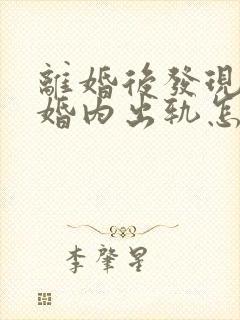 離婚後發現
婚內出軌怎
李肇星